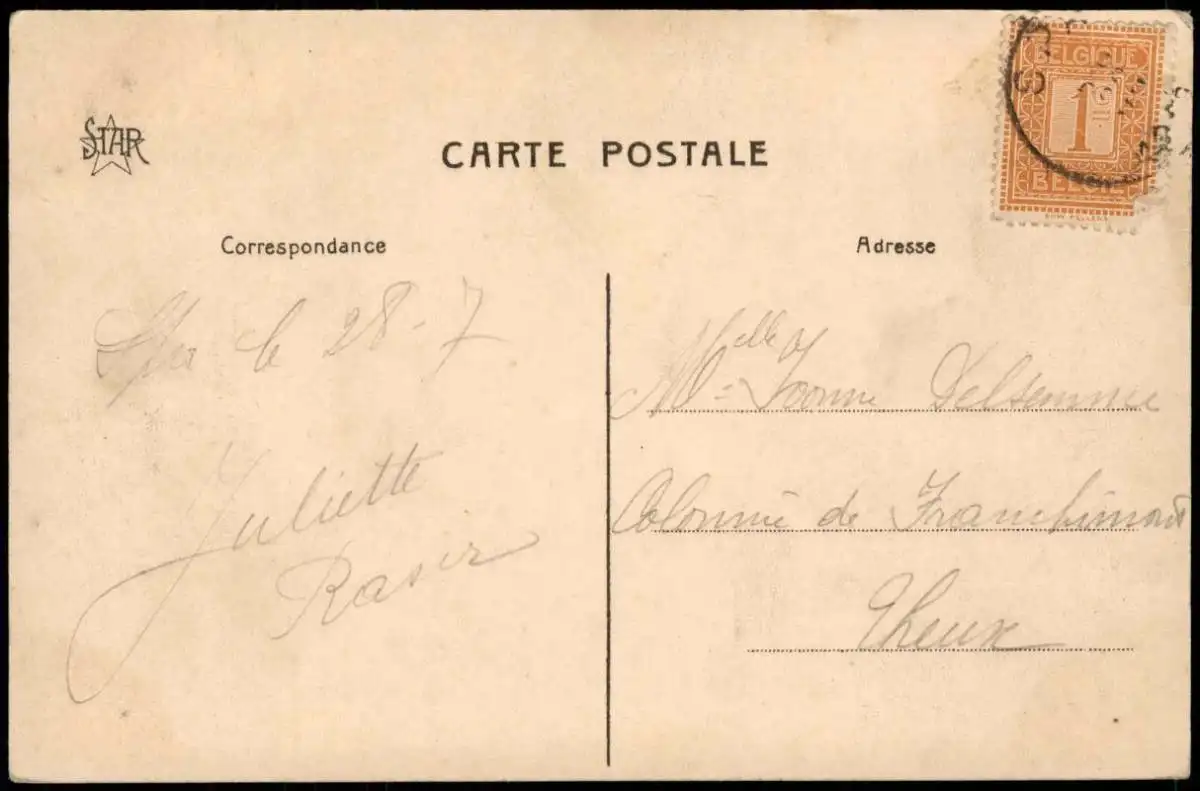 STAR
CARTE POSTALE
BELGIQUE
1 C
BELGIË
Correspondance
Adresse
Spa le 28-7
Juliette
Raser
Melle Yvonne Delsemme
Colonnie de Franchimont
Theux